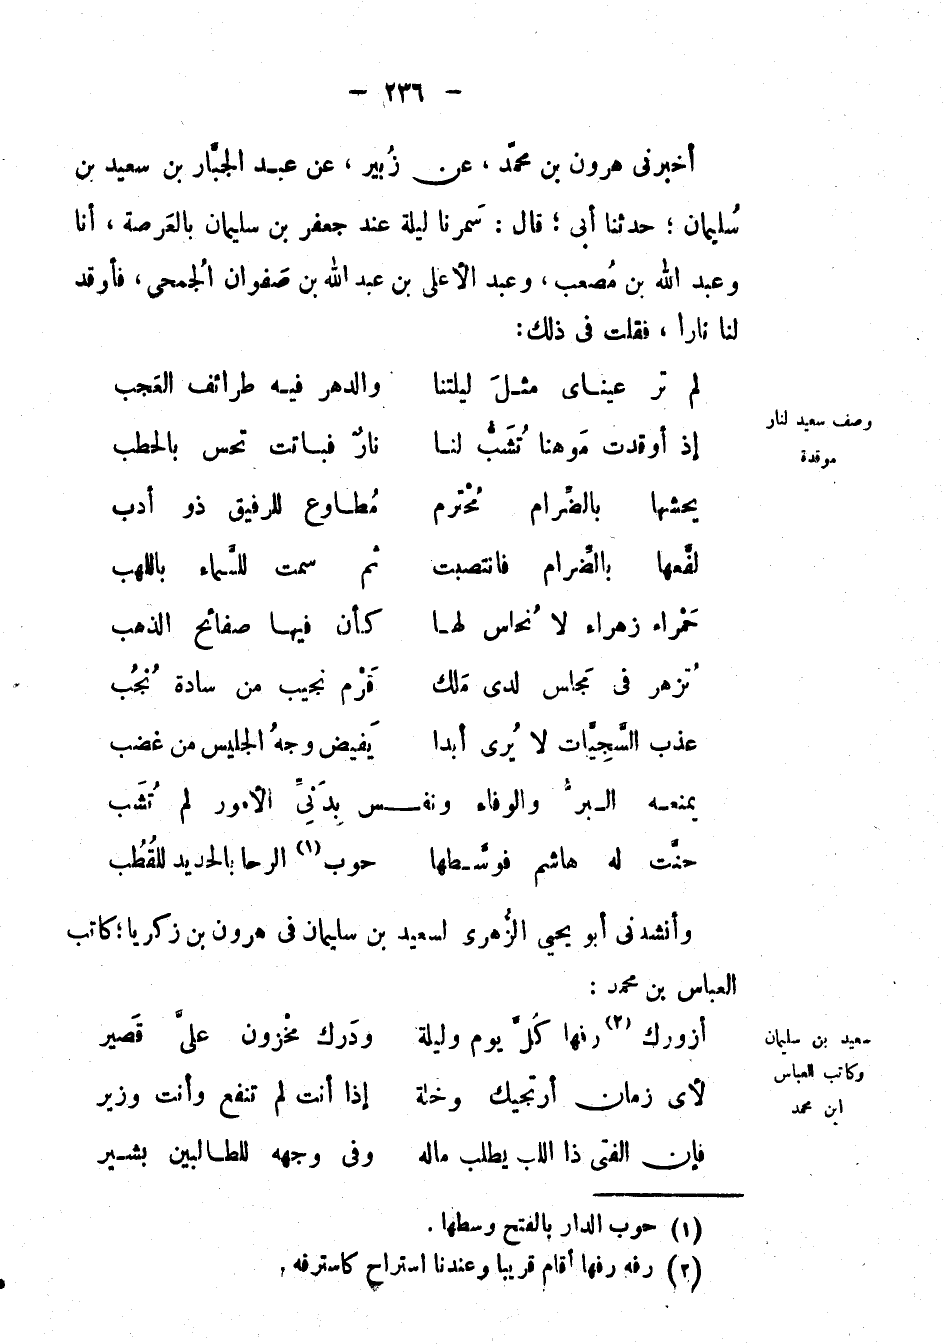 — ٢٣٦ —
أخبرنى هرون بن محمّد ، عن زُبير ، عن عبد الجبَّار بن سعيد بن
سُليمان ؛ حدثنا أبى ؛ قال : سَمرنا ليلة عند جعفر بن سليمان بالعَرصة ، أنا
وعبد الله بن مُصعب ، وعبد الأعلى بن عبد الله بن صَفوان الُجمحي ، فأوقد
لنا نارأ ، فقلت فى ذلك :
لم تر عينـاى مثـلَ ليلتنا والدهر فيـه طرائف العَجب
وصف سعيد لنار
إذ أوقدت مَوهنا تُشَبُّ لنـا نارٌ فبـاتت تحس بالحطب
موقدة
يحشها بالضِّرام مُحْترم مُطـاوع للرفيق ذو أدب
لفَّعها بالضِّرام فانتصبت ثم سمت للسَّماء باللهب
حَمْراء زهراء لا نُحاس لهـا كأن فيهـا صفائح الذهب
تُزهر فى مَجاس لدى مَلك قَرْم نجيب من سادة نُجُب
عذب السَّجِيَّات لا يُرى أبدا يَفيض وجهُ الجليس من غضب
يمنعـه الـبرُّ والوفاء ونفـس بِدَنِىِّ الأمور لم تُشَب
حنَّت له هاشم فوسَّـطها حوب(١) الرحا بالحديد للقُطُب
وأنشدنى أبو يحيي الزُّهرى لسعيد بن سليمان فى هرون بن زكريا ؛ كاتب
العباس بن محمد :
أزورك (٢) رفها كُلَّ يوم وليلة ودَرك مخْزون علىَّ قَصير
سعيد بن سليمان
وكاتب العباس
لأى زمان أرتجيك وخلة إذا أنت لم تنفع وأنت وزير
ابن محمد
فإن الفتى ذا اللب يطلب ماله وفى وجهه للطـالبين بشـير
(١) حوب الدار بالفتح وسطها .
(٢) رفه رفها أقام قريبا وعندنا استراح كاسترفه .